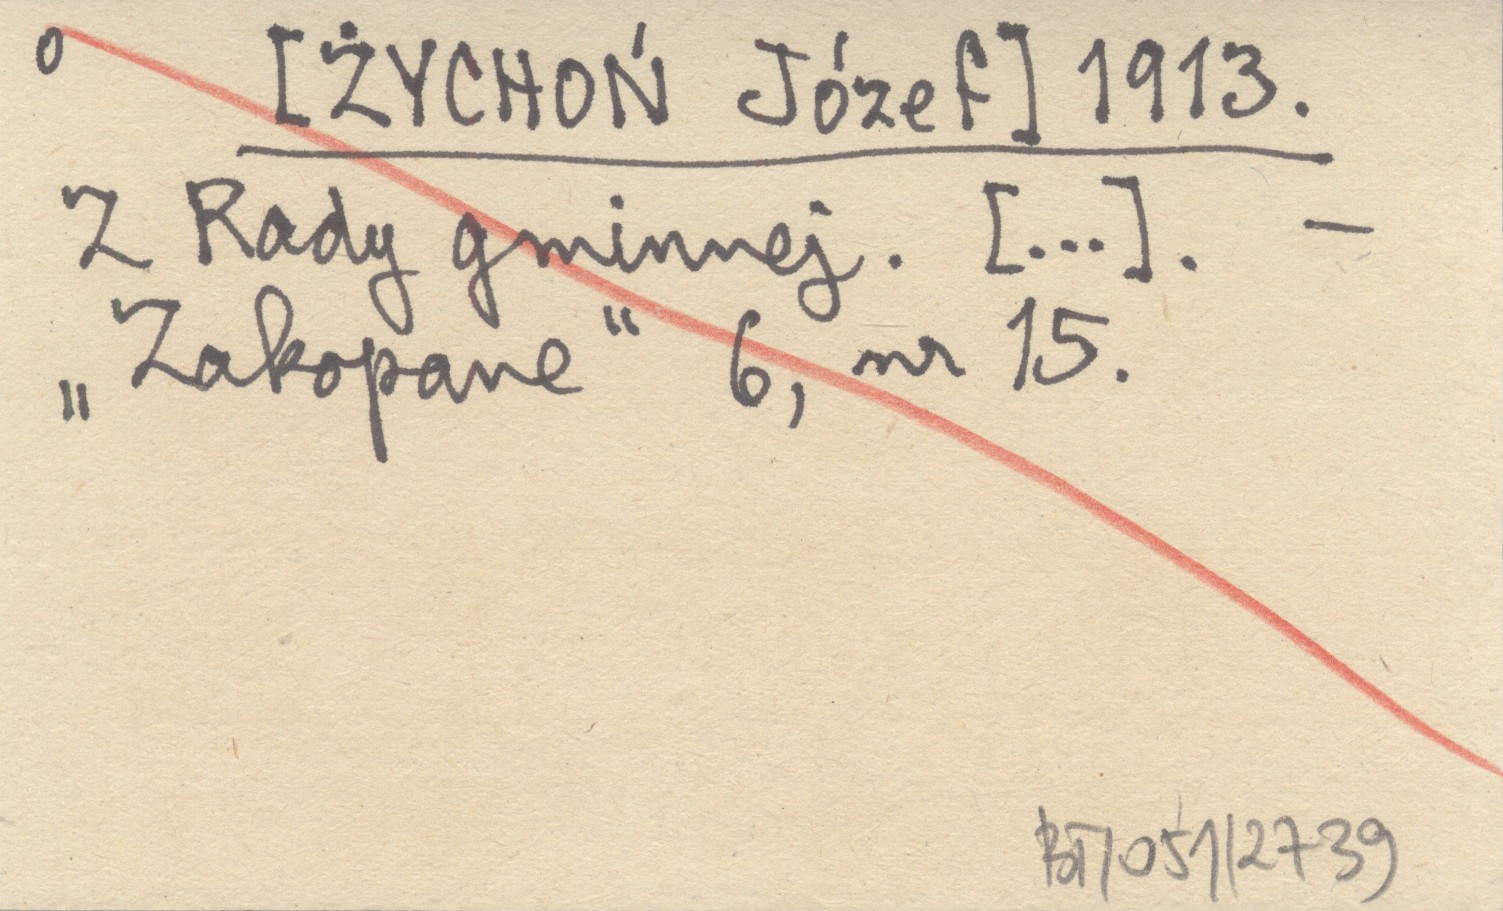 o [ŻYCHOŃ Józef] 1913.
Z Rady gminnej. [...]. —
„Zakopane“ 6, nr 15.
BT/051/2739